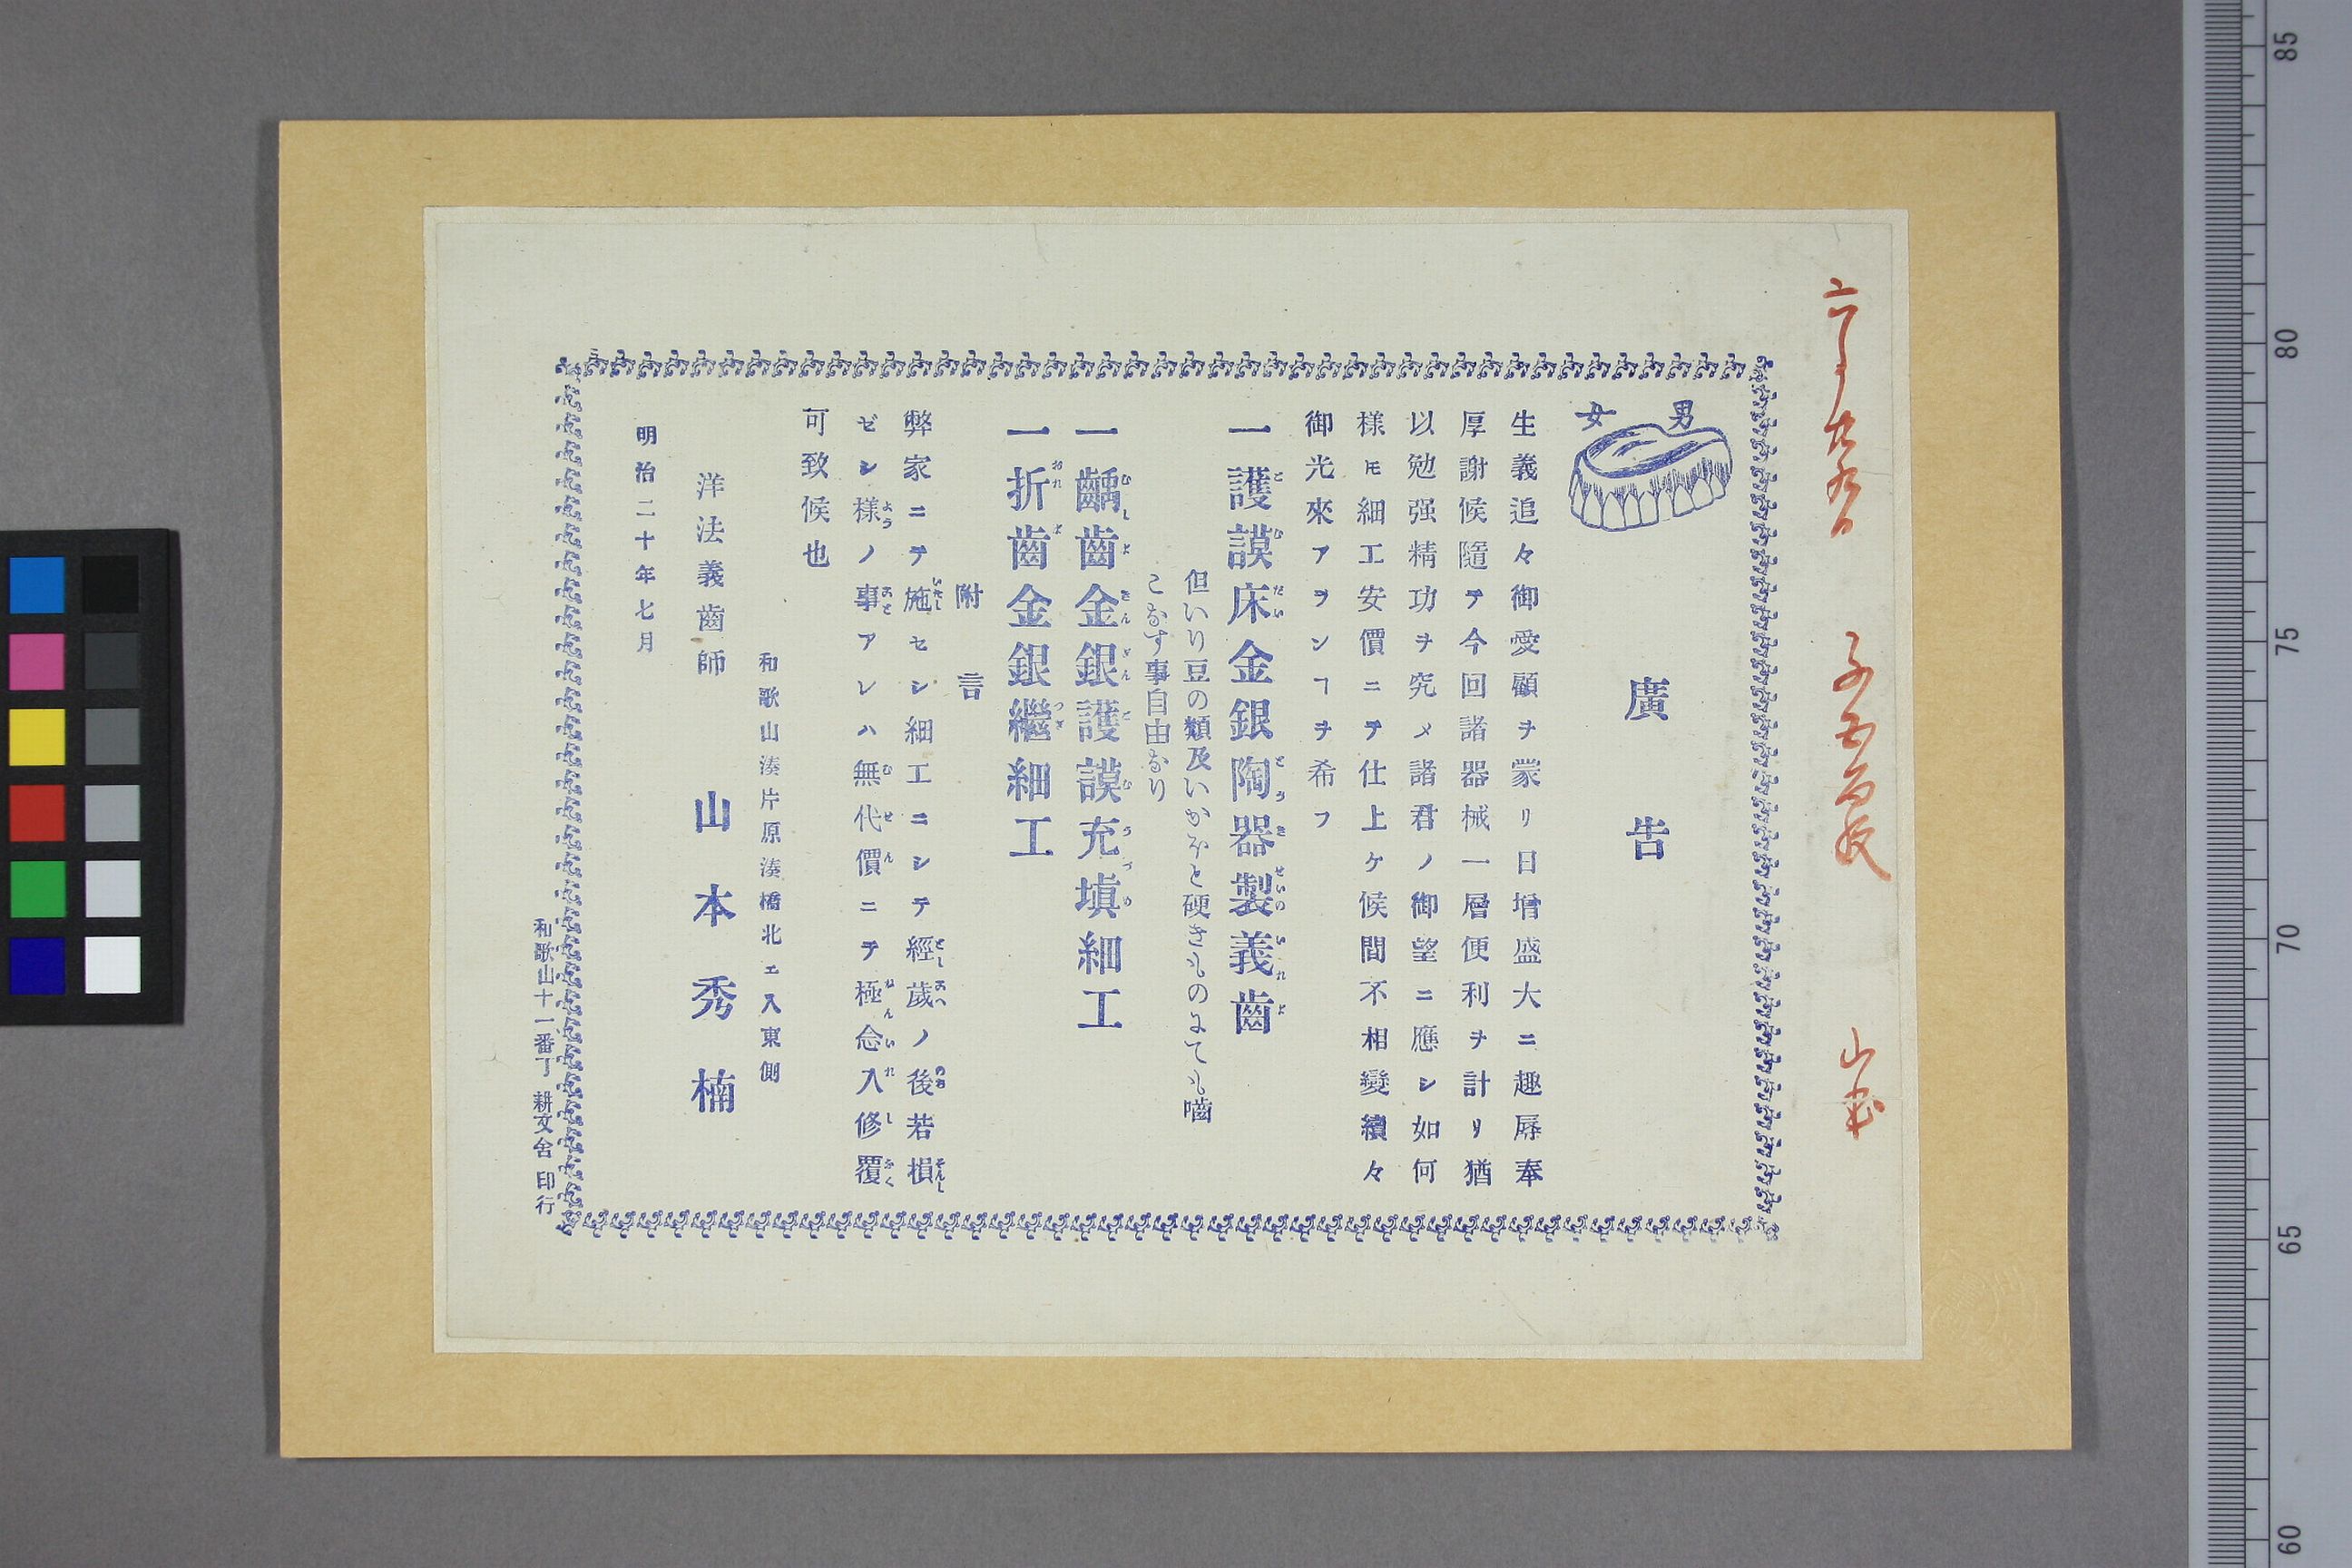 男
女
廣告
生義追々御愛顧ヲ蒙リ日増盛大ニ趣辱奉
厚謝候隨テ今回諸器械一層便利ヲ計リ猶
以勉强精功ヲ究メ諸君ノ御望ニ應シ如何
樣モ細工安價ニテ仕上ケ候間不相變續々
御光來アランヿヲ希フ
一護謨床金銀陶器製義齒
但いり豆の類及いかほと硬きものにても嚙
こなす事自由なり
一齲齒金銀護謨充塡細工
一折齒金銀繼細工
附言
弊家ニテ施セシ細工ニシテ經歲ノ後若損
ゼシ樣ノ事アレハ無代價ニテ極念入修覆
可致候也
和歌山湊片原湊橋北エ入東側
洋法義齒師 山本秀楠
明治二十年七月
和歌山十一番丁 耕文舍印行
85
80
75
70
65
60